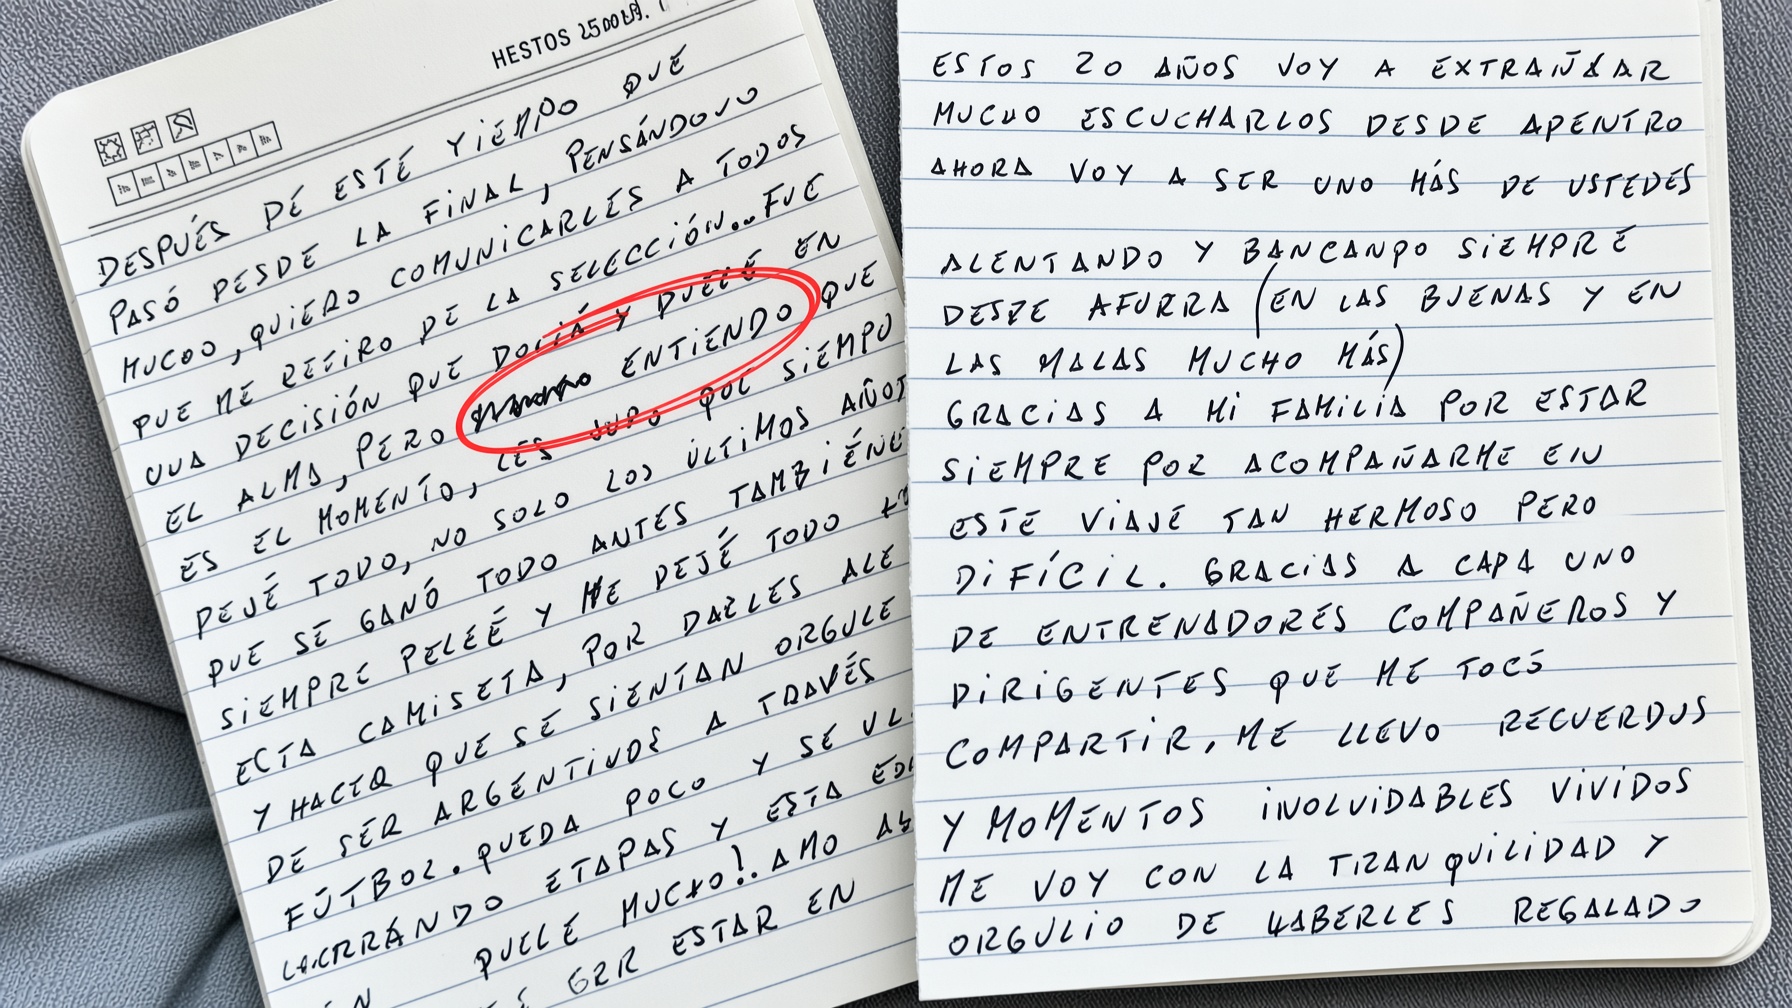 HESTOS
DESPUÉS DE ESTE YIEMPO QUE
PASÓ PESDE LA FINAL, PENSÁNDOVO
MUCOO, QUIERO COMUNICARLES A TODOS
PUE ME RETIRO DE LA SELECCIÓN... FUE
UUA DECISIÓN QUE Y DUELE EN
EL ALMA, PERO ENTIENDO QUE
ES EL MOMENTO, LES JURO QUE SIEMPO
PEJÉ TODO, NO SOLO LOS ÚLTIMOS AÑOS
PUE SE GANÓ TODO ANTES TAMBIÉN
SIEMPRE PELEÉ Y ME PEJÉ TODO
ECTA CAMISETA, POR DARLES ALE
Y HACER QUE SE SIENTAN ORGULE
DE SER ARGENTINOS A TRAVÉS
FÚTBOL. QUEDA POCO Y SE
ETAPAS Y ESTA
QUELE MUCHO!. AMO
ESTAR EN
ESTOS 20 AÑOS VOY A EXTRAÑAR
MUCHO ESCUCHARLOS DESDE APENTRO
AHORA VOY A SER UNO MÁS DE USTEDES
ALENTANDO Y BANCANPO SIEMPRE
DESZE AFURRA (EN LAS BUENAS Y EN
LAS MALAS MUCHO MÁS)
GRACIAS A MI FAMILIA POR ESTAR
SIEMPRE POR ACOMPAÑARME EN
ESTE VIAJE TAN HERMOSO PERO
DIFÍCIL. GRACIAS A CAPA UNO
DE ENTRENADORES COMPAÑEROS Y
DIRIGENTES QUE ME TOCÓ
COMPARTIR. ME LLEVO RECUERDUS
Y MOMENTOS INOLVIDABLES VIVIDOS
ME VOY CON LA TRANQUILIDAD Y
ORGULIO DE HABERLES REGALADO